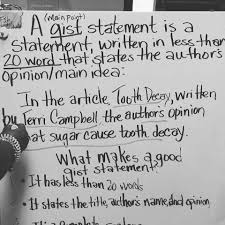 (Main point)
A gist statement is a
statement, written in less than
20 word that states the author's
opinion/main idea:
In the article, Tooth Decay, written
by Terri Campbell, the author's opinion
at sugar cause tooth decay.
What makes a good
gist statement?
• It has less than 20 words
• It states the title, author's name, and opinion